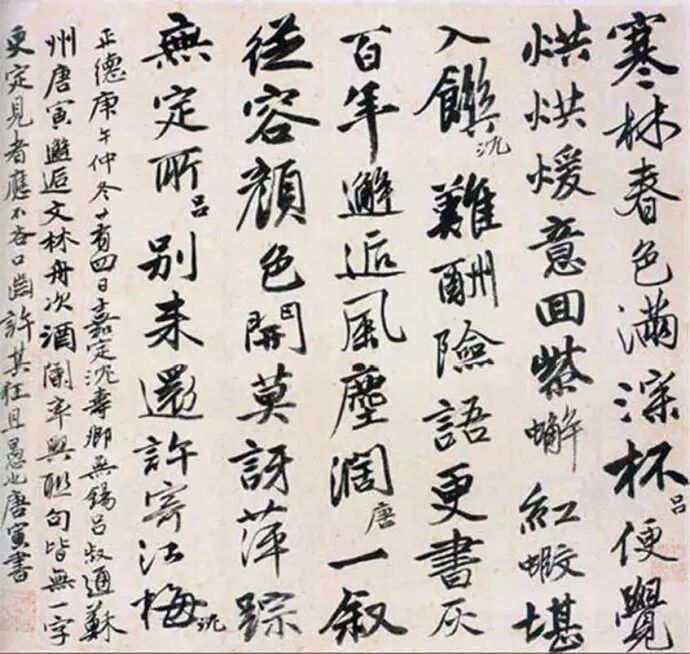 寒林春色滿深杯呂便覺
烘烘煖意回紫蠏紅蝦堪
入饌沈難酬險語更書灰
百年邂逅風塵闊唐一叙
從容顏色開莫訝萍踪
無定所呂別來還許寄江梅沈
正德庚午仲冬廿有四日嘉定沈壽卿無錫呂叔通蘇
州唐寅邂逅文林舟次酒闌率興聯句皆無一字
更定見者應不吝口齒許其狂且愚也唐寅書